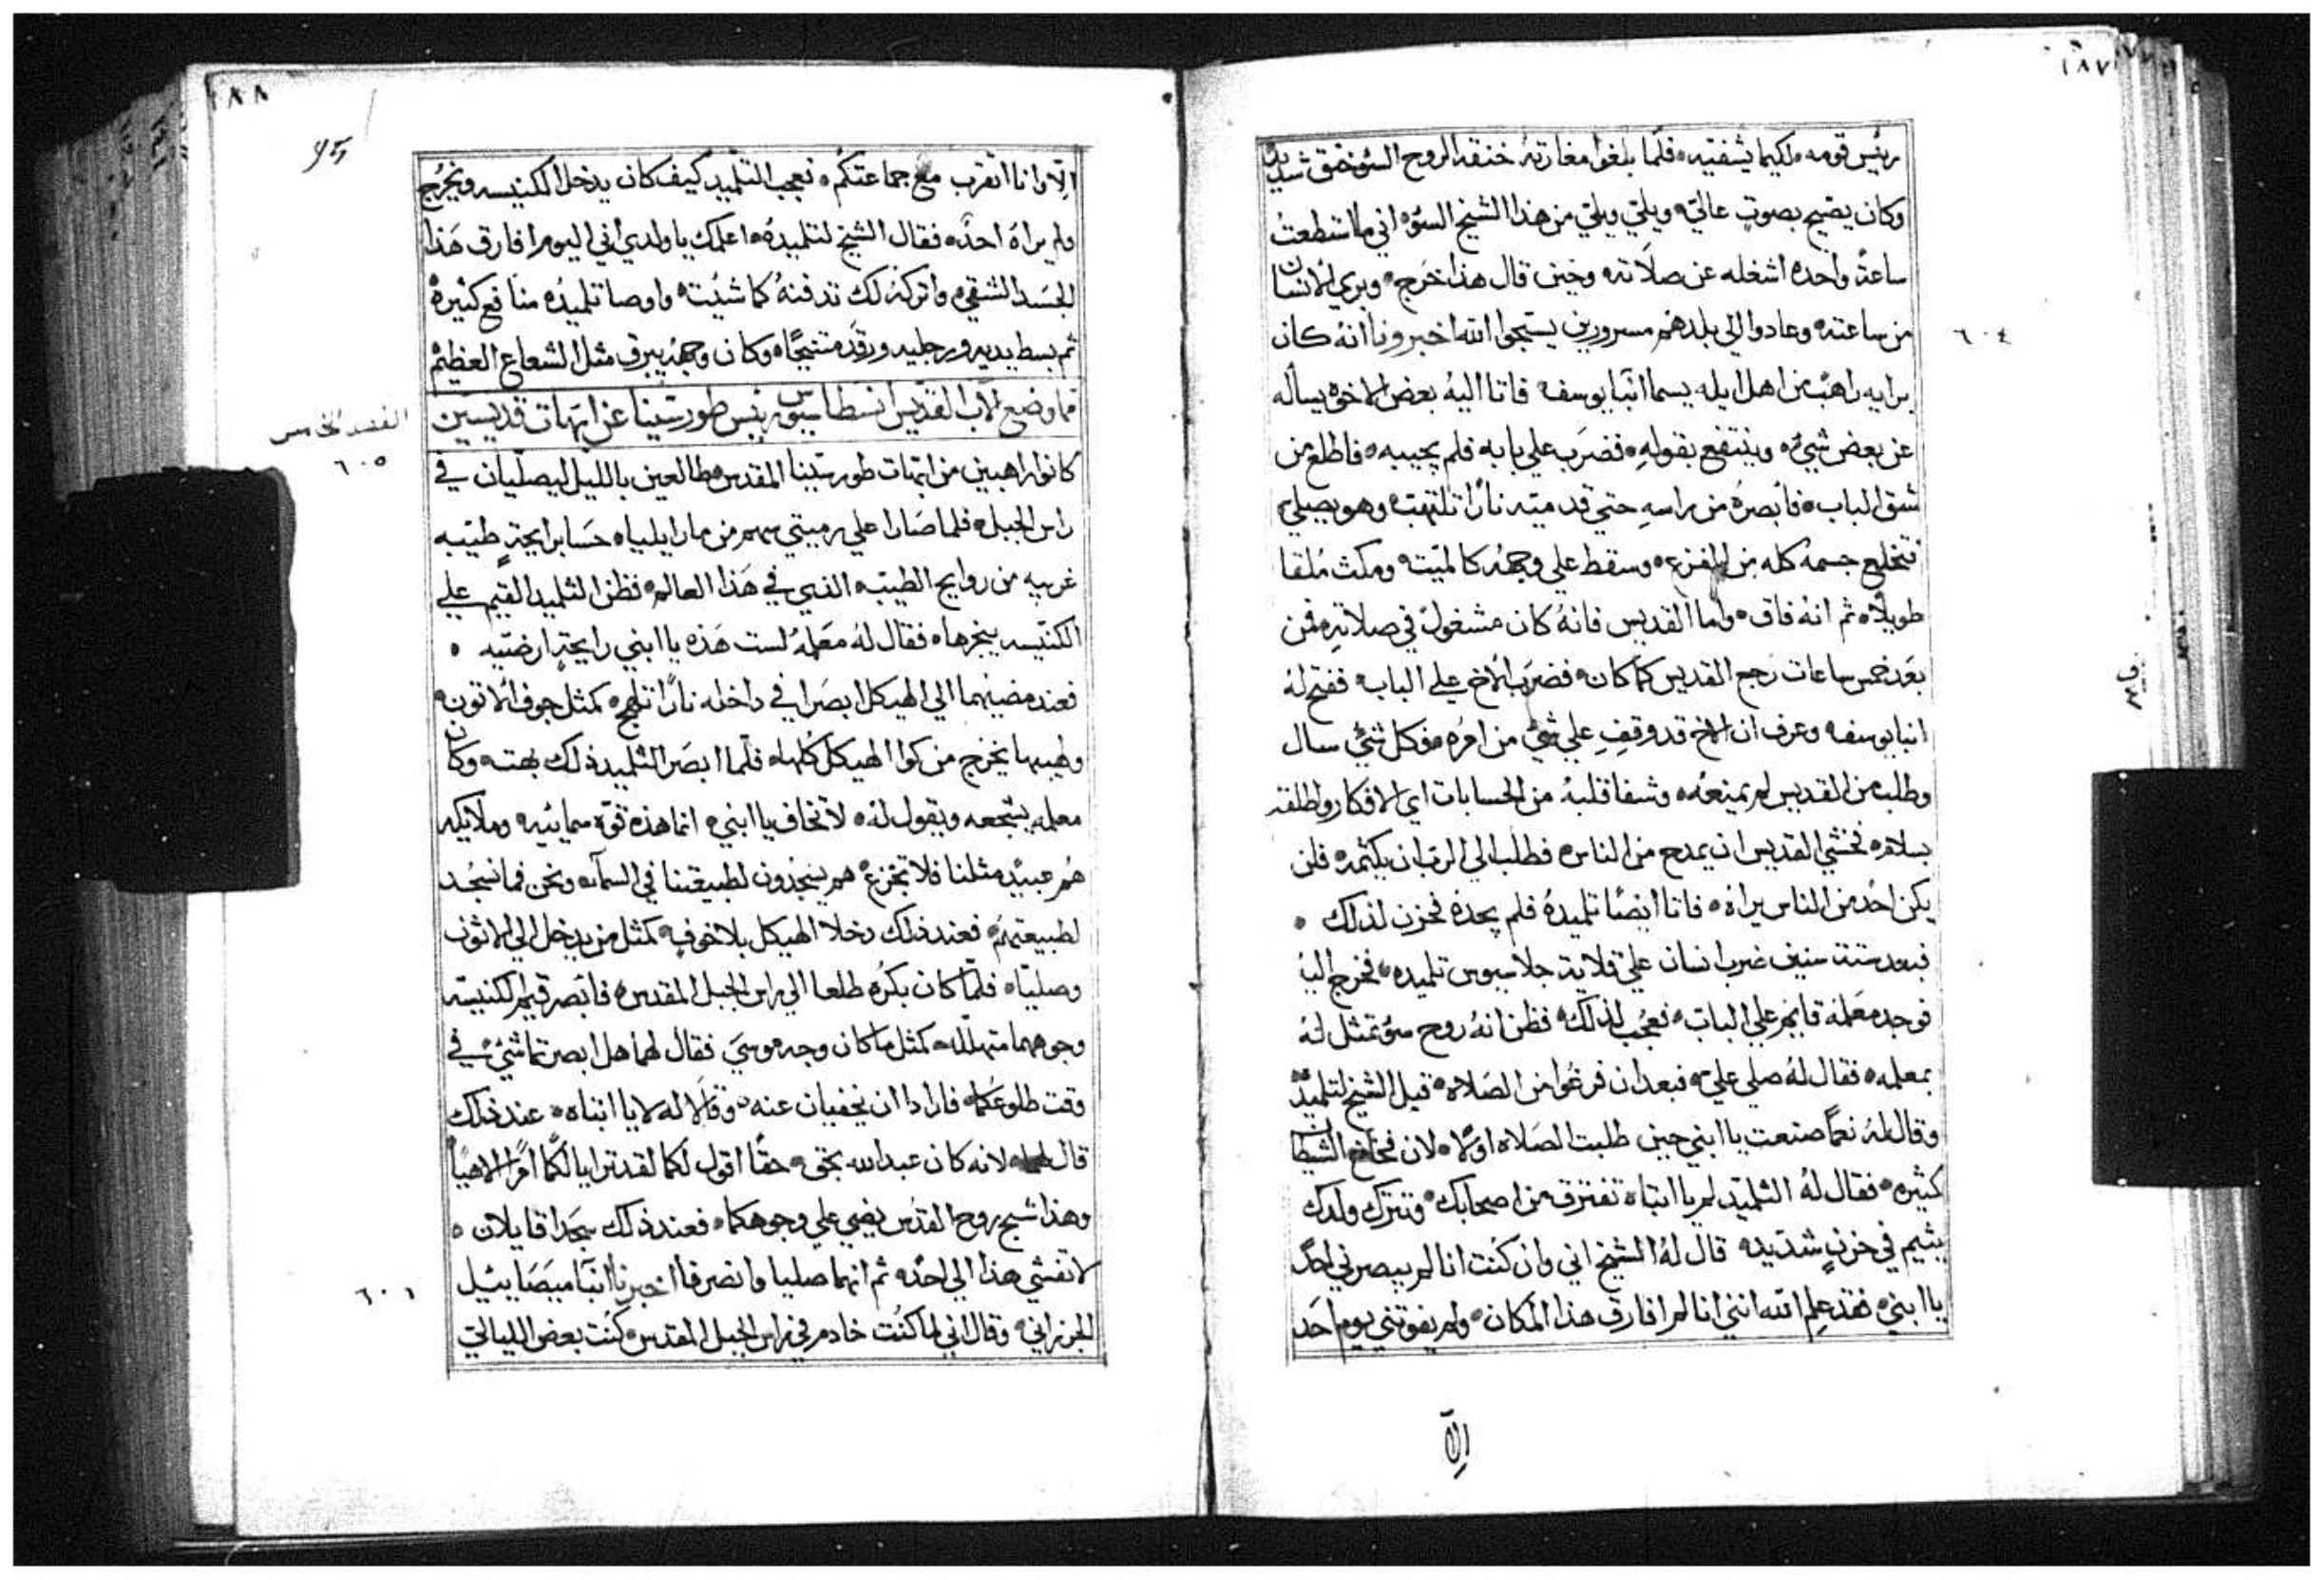 ١٨٧
ريئس قومه لكيما يشفيه فلما بلغوا مغارته خنقه الروح السو خنق شديد
وكان يصيح بصوت عالي ويلي ويلي من هذا الشيخ السو اني ما استطعت
ساعة واحده اشغله عن صلاته وحين قال هذا خرج وبري الانسان
من ساعته وعادوا الي بلدهم مسرورين يسبحوا الله اخبرونا انه كان
٦٠٤
برايه راهب من اهل ايله يسما انبا يوسف فاتا اليه بعض الاخوه يساله
عن بعض شيء وينتفع بقوله فضرب علي بابه فلم يجيبه فاطلع من
شق الباب فابصره من راسه حتي قدميه نارًا تلتهب وهو يصلي
فتخلع جسمه كله من الفزع وسقط علي وجهه كالميت ومكث ملقا
طويلا ثم انه فاق واما القديس فانه كان مشغول في صلاته فمن
بعد خمس ساعات رجع القديس كما كان فضرب الاخ علي الباب ففتح له
انبا يوسف وعرف ان الاخ قد وقف علي شي من امره فوكل شي سال
وطلب من القديس لم يمنعه وشفا قلبه من الحسابات اي الافكار واطلقه
بسلام فخشي القديس ان يمدح من الناس فطلب الي الرب ان يكتمه فلن
يكن احد من الناس يراه فاتا ايضا تلميده فلم يجده فحزن لذلك
فبعد ستة سنين ضرب انسان علي قلاية جلاسيوس تلميده فخرج اليه
فوجد معلمه قايم علي الباب فعجب لذلك فظن انه روح سو تمثل له
بمعلمه فقال له صلي علي فبعد ان فرغوا من الصلاه قبل الشيخ لتلميده
وقال له نعما صنعت يا ابني حين طلبت الصلاه اولا لان فخاخ الشيطان
كثيره فقال له التلميد لم يا ابتاه تفترق من اصحابك وتترك ولدك
يتيم في حزن شديد قال له الشيخ اني وان كنت انا لم يبصرني احد
يا ابني فقد علم الله انني انا لم افارق هذا المكان ولم يفوتني يوم احد
الا
١٨٨
الا وانا اتقرب مع جماعتكم فعجب التلميد كيف كان يدخل الكنيسه ويخرج
ولم يراه احد فقال الشيخ لتلميده اعلمك يا ولدي اني اليوم افارق هذا
الجسد الشقي واتركه لك تدفنه كما شئت واوصا تلميده منافع كثيره
ثم بسط يديه ورجليه ورقد متنيحًا وكان وجهه يبرق مثل الشعاع العظيم
مما وضع الاب القديس انسطاسيوس ريئس طور سينا عن ابهات قديسين
الخامس
٦٠٥
كانوا راهبين من ابهات طور سينا المقدس طالعين بالليل ليصليان في
راس الجبل فلما صارا علي رميتي سهم من مار ايلياه حسا برايحةٍ طيبه
غريبه من روايح الطيبه الذي في هذا العالم فظن التلميد القيم علي
الكنيسه يبخرها فقال له معلمه لست هذه يا ابني رايحةٍ ارضيه
فعند مضيهما الي الهيكل ابصرا في داخله نارًا تلهج كمثل جوف الاتون
ولهيبها يخرج من كوا الهيكل كلها فلما ابصر التلميد ذلك بهت وكان
معلمه يشجعه ويقول له لا تخاف يا ابني انما هذه قوة سمائيه وملايكه
هم عبيد مثلنا فلا تجزع هم يسجدون لطبيعتنا في السماء ونحن فما نسجد
لطبيعتهم فعند ذلك دخلا الهيكل بلا خوف كمثل من يدخل الي الاتون
وصليا فلما كان بكره طلعا الي راس الجبل المقدس فابصر قيم الكنيسه
وجوههما متهلله كمثل ما كان وجه موسي فقال لهما هل ابصرتما شيء في
وقت طلوعكما فارادا ان يخفيان عنه وقالا له لا يا ابتاه عند ذلك
قال لهما لانه كان عبد الله بحق حقًا اقول لكما لقد ترايا لكما امرًا الاهيًا
وهذا شبح روح القدس يضي علي وجوهكما فعند ذلك سجدا قايلان
لا تفشي هذا الي احد ثم انهما صليا وانصرفا اخبرنا انبا ميصاييل
٦٠٦
الجرزاني وقال اني لما كنت خادم في راس الجبل المقدس كنت بعض الليالي